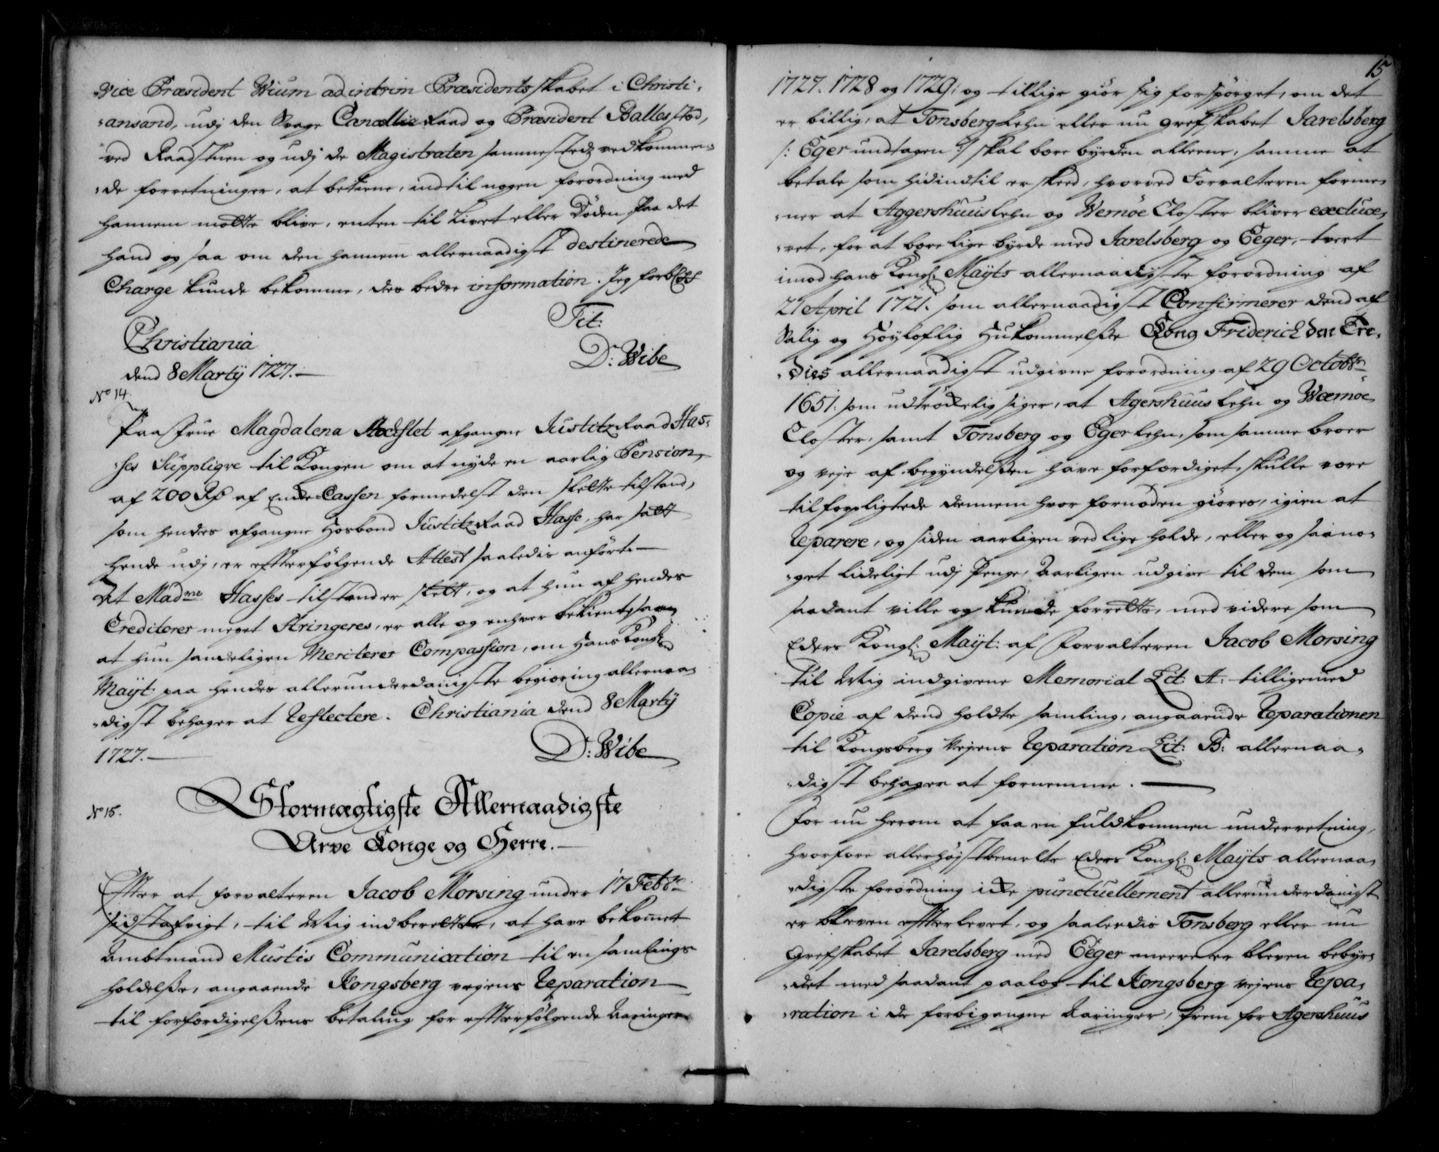 Vice Præsident Wium ad intrim Præsidentsskabet i Christi-
-ansand, udj den Svage Cancellie Raad og Præsident Ballestad,
ved Raadstuen og udj de Magistraten sammesteds vedkommen-
-de forretninger, at betiene, indtil nogen forordning med
hannem motte blive, enten til Livet eller Døden paa det
hand og saa om den hannem allernaadigst destinerede
Charge kunde bekomme, des bedre information. Jeg forblifr
Tit:
Christiania
dend 8 Martij 1727.
D: Wibe
No 14.
Paa Frue Magdalena afgangne Justitz Raad Has-
-ses Suppliqve til Kongen om at nyde en aarlig Pension
af 200 Rd af Cassen formedelst den slette tilstand,
som hendes afgangne Hosbond Justitz Raad Hasse, har satt
hende udj, er efterfølgende Attest saaledis anført.
At Madme Hasses tilstand er slett, og at hun af hendes
Creditorer meget Stringeres, er alle og enhver bekient, saa
at hun sandeligen Meriterer Compassion, om Hans Kongl:
Mayt paa hendes allerunderdanigste begiering allernaa-
-digst behager at reflectere. Christiania dend 8 Martij
1727.
D: Wibe
No 15.
Stormægtigste Allernaadigste
Arve Konge og Herre.
Efter at forvalteren Jacob Morsing under 17 Febr:
sidstafvigt, til Mig indberetter, at have bekommet
Ambtmand Mustis Communication til en samlings
holdelse, angaaende Kongsberg vejens Reparation
til forfærdigelsens betaling for efterfølgende Aaringer
15
1727. 1728 og 1729; og tillige giør sig forspørget, om det
er billig, at Tonsberg Lehn eller nu grefskabet Jarelsberg
/: Eger undtagen :/ skal bære byrden allene, samme at
betale som hidindtil er skeed, hvorved Forvalteren forme-
-ner at Aggershuus Lehn og Wernøe Closter bliver excluse-
-ret, for at bære lige byrde med Jarelsberg og Eeger, tvert
imod hans Kongl: Mayts allernaadigste forordning af
21 April 1721. som allernaadigst Confirmerer dend af
Salig og Høyloflig Hukommelse Kong Friderich den Tre-
-dies allernaadigst udgivne forordning af 29 Octobr:
1651. som udtrøkelig siger, at Agershuus Lehn og Wærnøe
Closter, samt Tonsberg og Eger Lehn, som samme broer
og veje af begyndelsen have forfærdiget, skulle være
tilforpligtede dennem hvor fornøden giøres, igien at
reparere, og siden aarligen ved lige holde, eller og saa no-
-get lideligt udj Penge, Aarligen udgive til dem som
saadant ville og kunde forrette, med videre som
Eders Kongl: Mayt: af forvalteren Jacob Morsing
til Mig indgivene Memorial Lit A: tilligemed
Copie af dend holdte samling, angaaende Reparationen
til Kongsberg Vejens Reparation Lit: B: allernaa-
-digst behager at fornemme.
For nu herom at faa en fuldkommen underretning,
hvorfore allerhøjstbemelte Eders Kongl: Mayts allernaa-
-digste forordning icke punctuellement allerunderdanigst
er bleven efterlevet, og saaledis Tonsberg eller nu
Grefskabet Jarelsberg med Eeger meere er bleven bebyr-
-det med saadant paalæg til Kongsberg vejens Repa-
-ration i de forbigangne Aaringer, frem for Agershuus